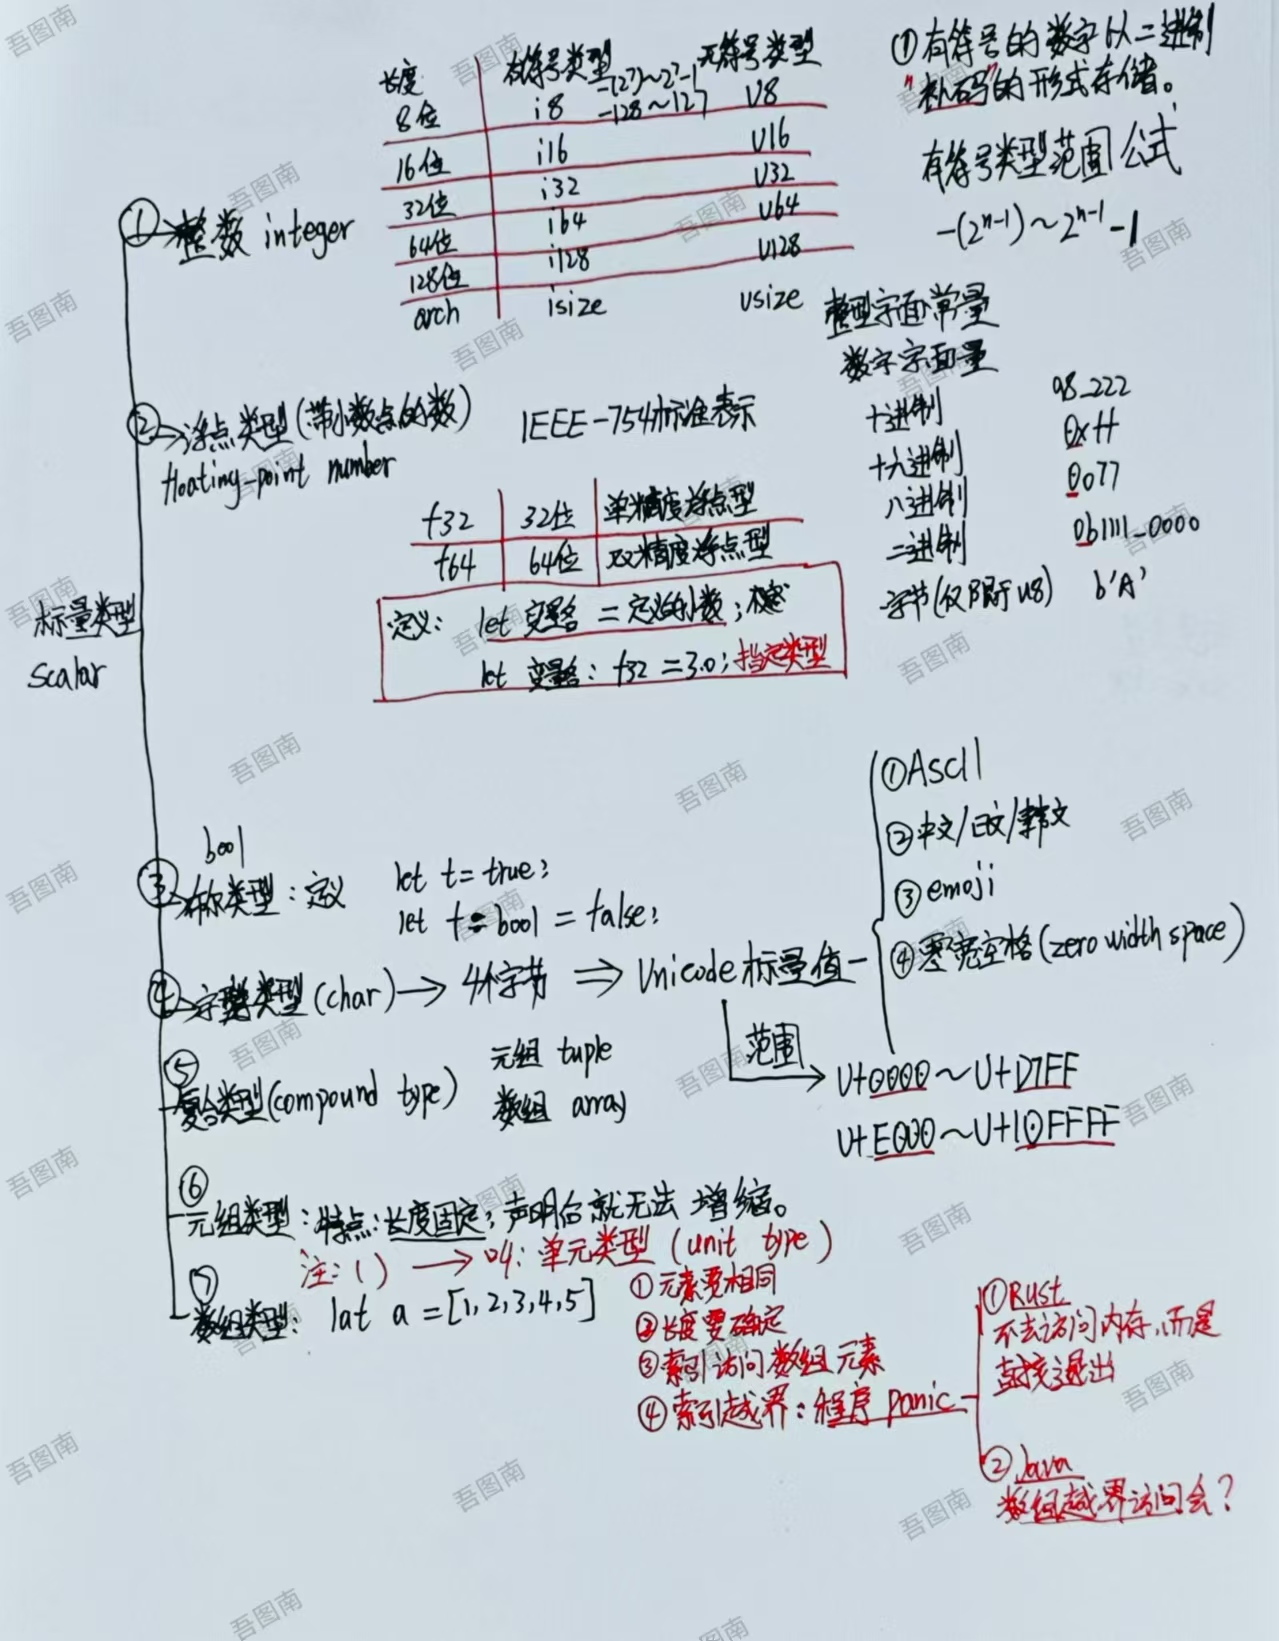 标量类型
scalar
① 整数 integer
长度 有符号类型 无符号类型
8位 i8 -(2⁷)~2⁷-1 U8
-128~127
16位 i16 U16
32位 i32 U32
64位 i64 U64
128位 i128 U128
arch isize usize
① 有符号的数字以二进制
"补码"的形式存储。
有符号类型范围公式
-(2ⁿ⁻¹)~2ⁿ⁻¹-1
整型字面常量
数字字面量
十进制 98_222
十六进制 0xff
八进制 0o77
二进制 0b1111_0000
字节(仅限于u8) b'A'
② 浮点类型(带小数点的数) IEEE-754标准表示
floating-point number
f32 32位 单精度浮点型
f64 64位 双精度浮点型
定义: let 变量名 = 定义的小数;
let 变量名: f32 = 3.0; 指定类型
③ bool
布尔类型: 定义 let t = true;
let f = bool = false;
④ 字符类型(char) → 4个字节 ⇒ Unicode标量值
① Ascll
② 中文/日文/韩文
③ emoji
④ 零宽空格(zero width space)
范围
U+0000~U+D7FF
U+E000~U+10FFFF
⑤
复合类型(compound type) 元组 tuple
数组 array
⑥
元组类型: 特点: 长度固定; 声明后就无法增缩。
注: ( ) → 叫: 单元类型 (unit type)
⑦
数组类型: lat a = [1,2,3,4,5]
① 元素要相同
② 长度要确定
③ 索引访问数组元素
④ 索引越界: 程序 panic
① Rust
不去访问内存,而是
直接退出
② Java
数组越界访问会?
吾图南